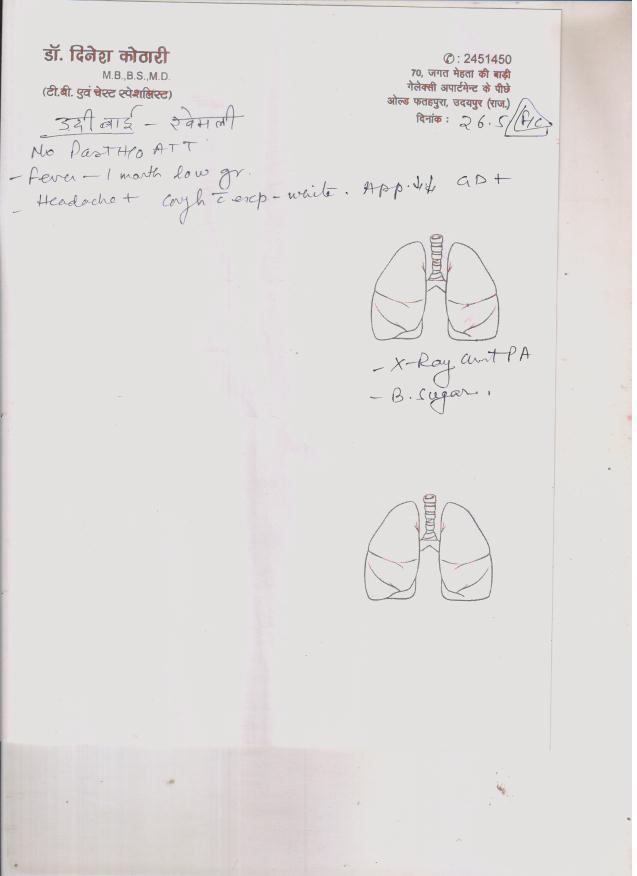 डॉ. दिनेश कोठारी
M.B.,B.S.,M.D.
(टी.बी. एवं चेस्ट स्पेशलिस्ट)
✆ : 2451450
70, जगत मेहता की बाड़ी
गेलेक्सी अपार्टमेन्ट के पीछे
ओल्ड फतहपुरा, उदयपुर (राज.)
दिनांक : 26.5
उदी बाई - खेमली
No Past H/o ATT
- Fever - 1 month low gr.
- Headache + Cough c̄ exp - white. App. ↓↓ GD +
- X-Ray chest PA
- B. Sugar.